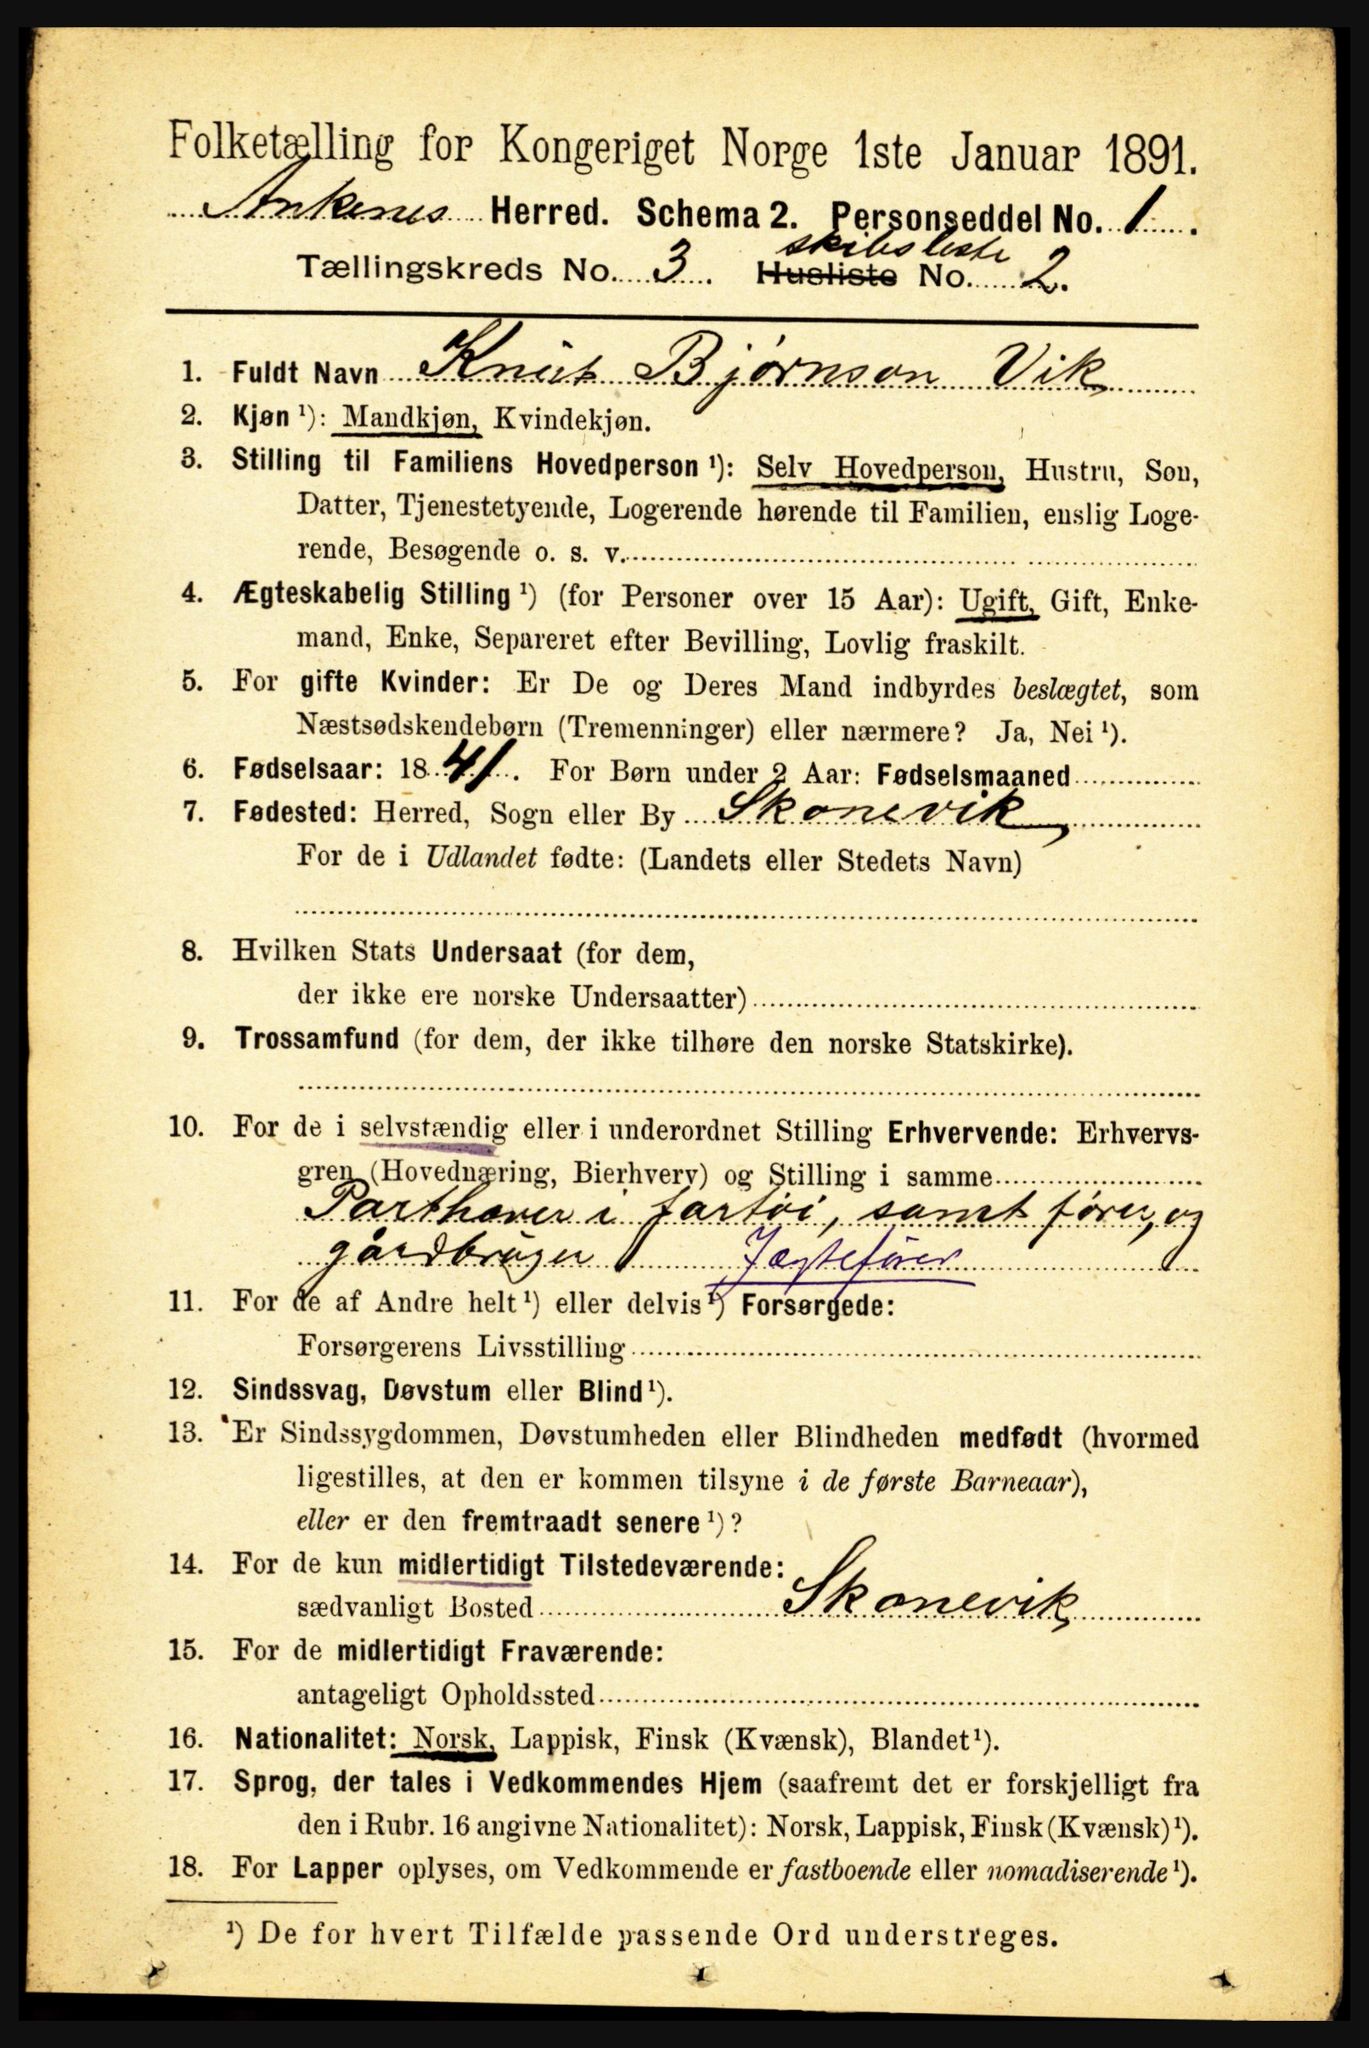 Folketælling for Kongeriget Norge 1ste Januar 1891.
Ankenes Herred. Schema 2. Personseddel No. 1.
skibsliste
Tællingskreds No. 3. Husliste No. 2.
1. Fuldt Navn Knut Bjørnson Vik
2. Kjøn ¹): Mandkjøn, Kvindekjøn.
3. Stilling til Familiens Hovedperson ¹): Selv Hovedperson, Hustru, Søn,
Datter, Tjenestetyende, Logerende hørende til Familien, enslig Loge-
rende, Besøgende o. s. v.
4. Ægteskabelig Stilling ¹) (for Personer over 15 Aar): Ugift, Gift, Enke-
mand, Enke, Separeret efter Bevilling, Lovlig fraskilt.
5. For gifte Kvinder: Er De og Deres Mand indbyrdes beslægtet, som
Næstsødskendebørn (Tremenninger) eller nærmere? Ja, Nei ¹).
6. Fødselsaar: 1841. For Børn under 2 Aar: Fødselsmaaned
7. Fødested: Herred, Sogn eller By Skonevik
For de i Udlandet fødte: (Landets eller Stedets Navn)
8. Hvilken Stats Undersaat (for dem,
der ikke ere norske Undersaatter)
9. Trossamfund (for dem, der ikke tilhøre den norske Statskirke).
10. For de i selvstændig eller i underordnet Stilling Erhvervende: Erhvervs-
gren (Hovednæring, Bierhverv) og Stilling i samme
Parthaver i fartøi, samt fører, og
gårdbruger Jægtefører
11. For de af Andre helt ¹) eller delvis ¹) Forsørgede:
Forsørgerens Livsstilling
12. Sindssvag, Døvstum eller Blind ¹).
13. Er Sindssygdommen, Døvstumheden eller Blindheden medfødt (hvormed
ligestilles, at den er kommen tilsyne i de første Barneaar),
eller er den fremtraadt senere ¹)?
14. For de kun midlertidigt Tilstedeværende:
sædvanligt Bosted Skonevik
15. For de midlertidigt Fraværende:
antageligt Opholdssted
16. Nationalitet: Norsk, Lappisk, Finsk (Kvænsk), Blandet ¹).
17. Sprog, der tales i Vedkommendes Hjem (saafremt det er forskjelligt fra
den i Rubr. 16 angivne Nationalitet): Norsk, Lappisk, Finsk (Kvænsk) ¹).
18. For Lapper oplyses, om Vedkommende er fastboende eller nomadiserende ¹).
¹) De for hvert Tilfælde passende Ord understreges.